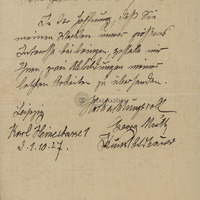 In der Hoffnung, daß Sie
meinen Werken immer größeres
Interesse beibringen, gestatte mir
Ihnen zwei Abbildungen meiner
letzten Arbeiten zu übersenden.
Leipzig Hochachtungsvoll
Karl Heinestrasse 1 Georg
d. 1.10.27.